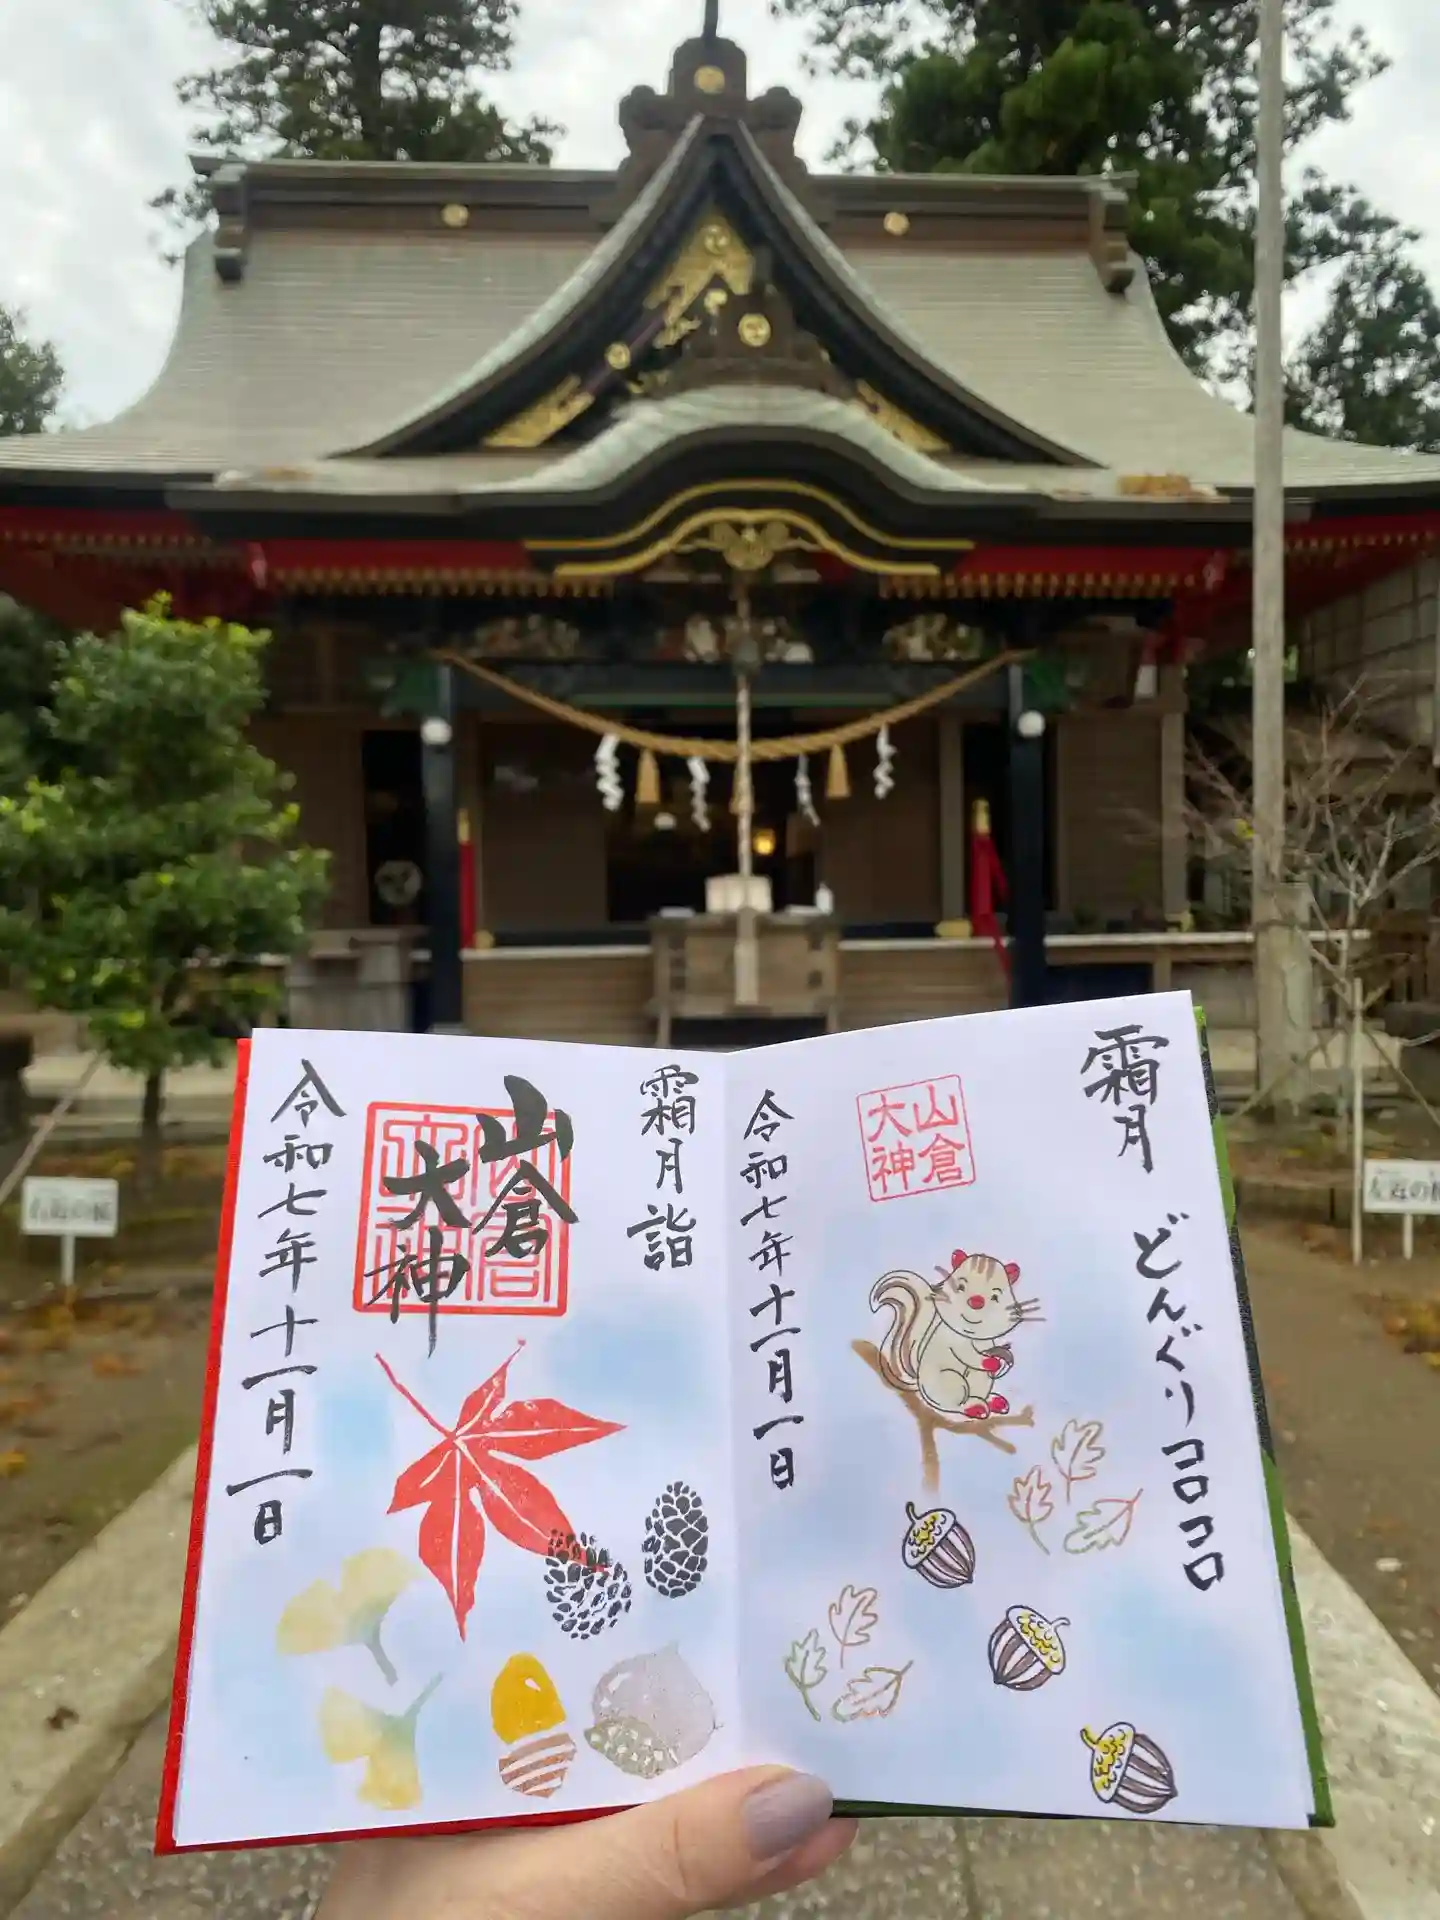 霜月
どんぐりコロコロ
山倉
大神
令和七年十一月一日
霜月詣
山倉
大神
令和七年十一月一日